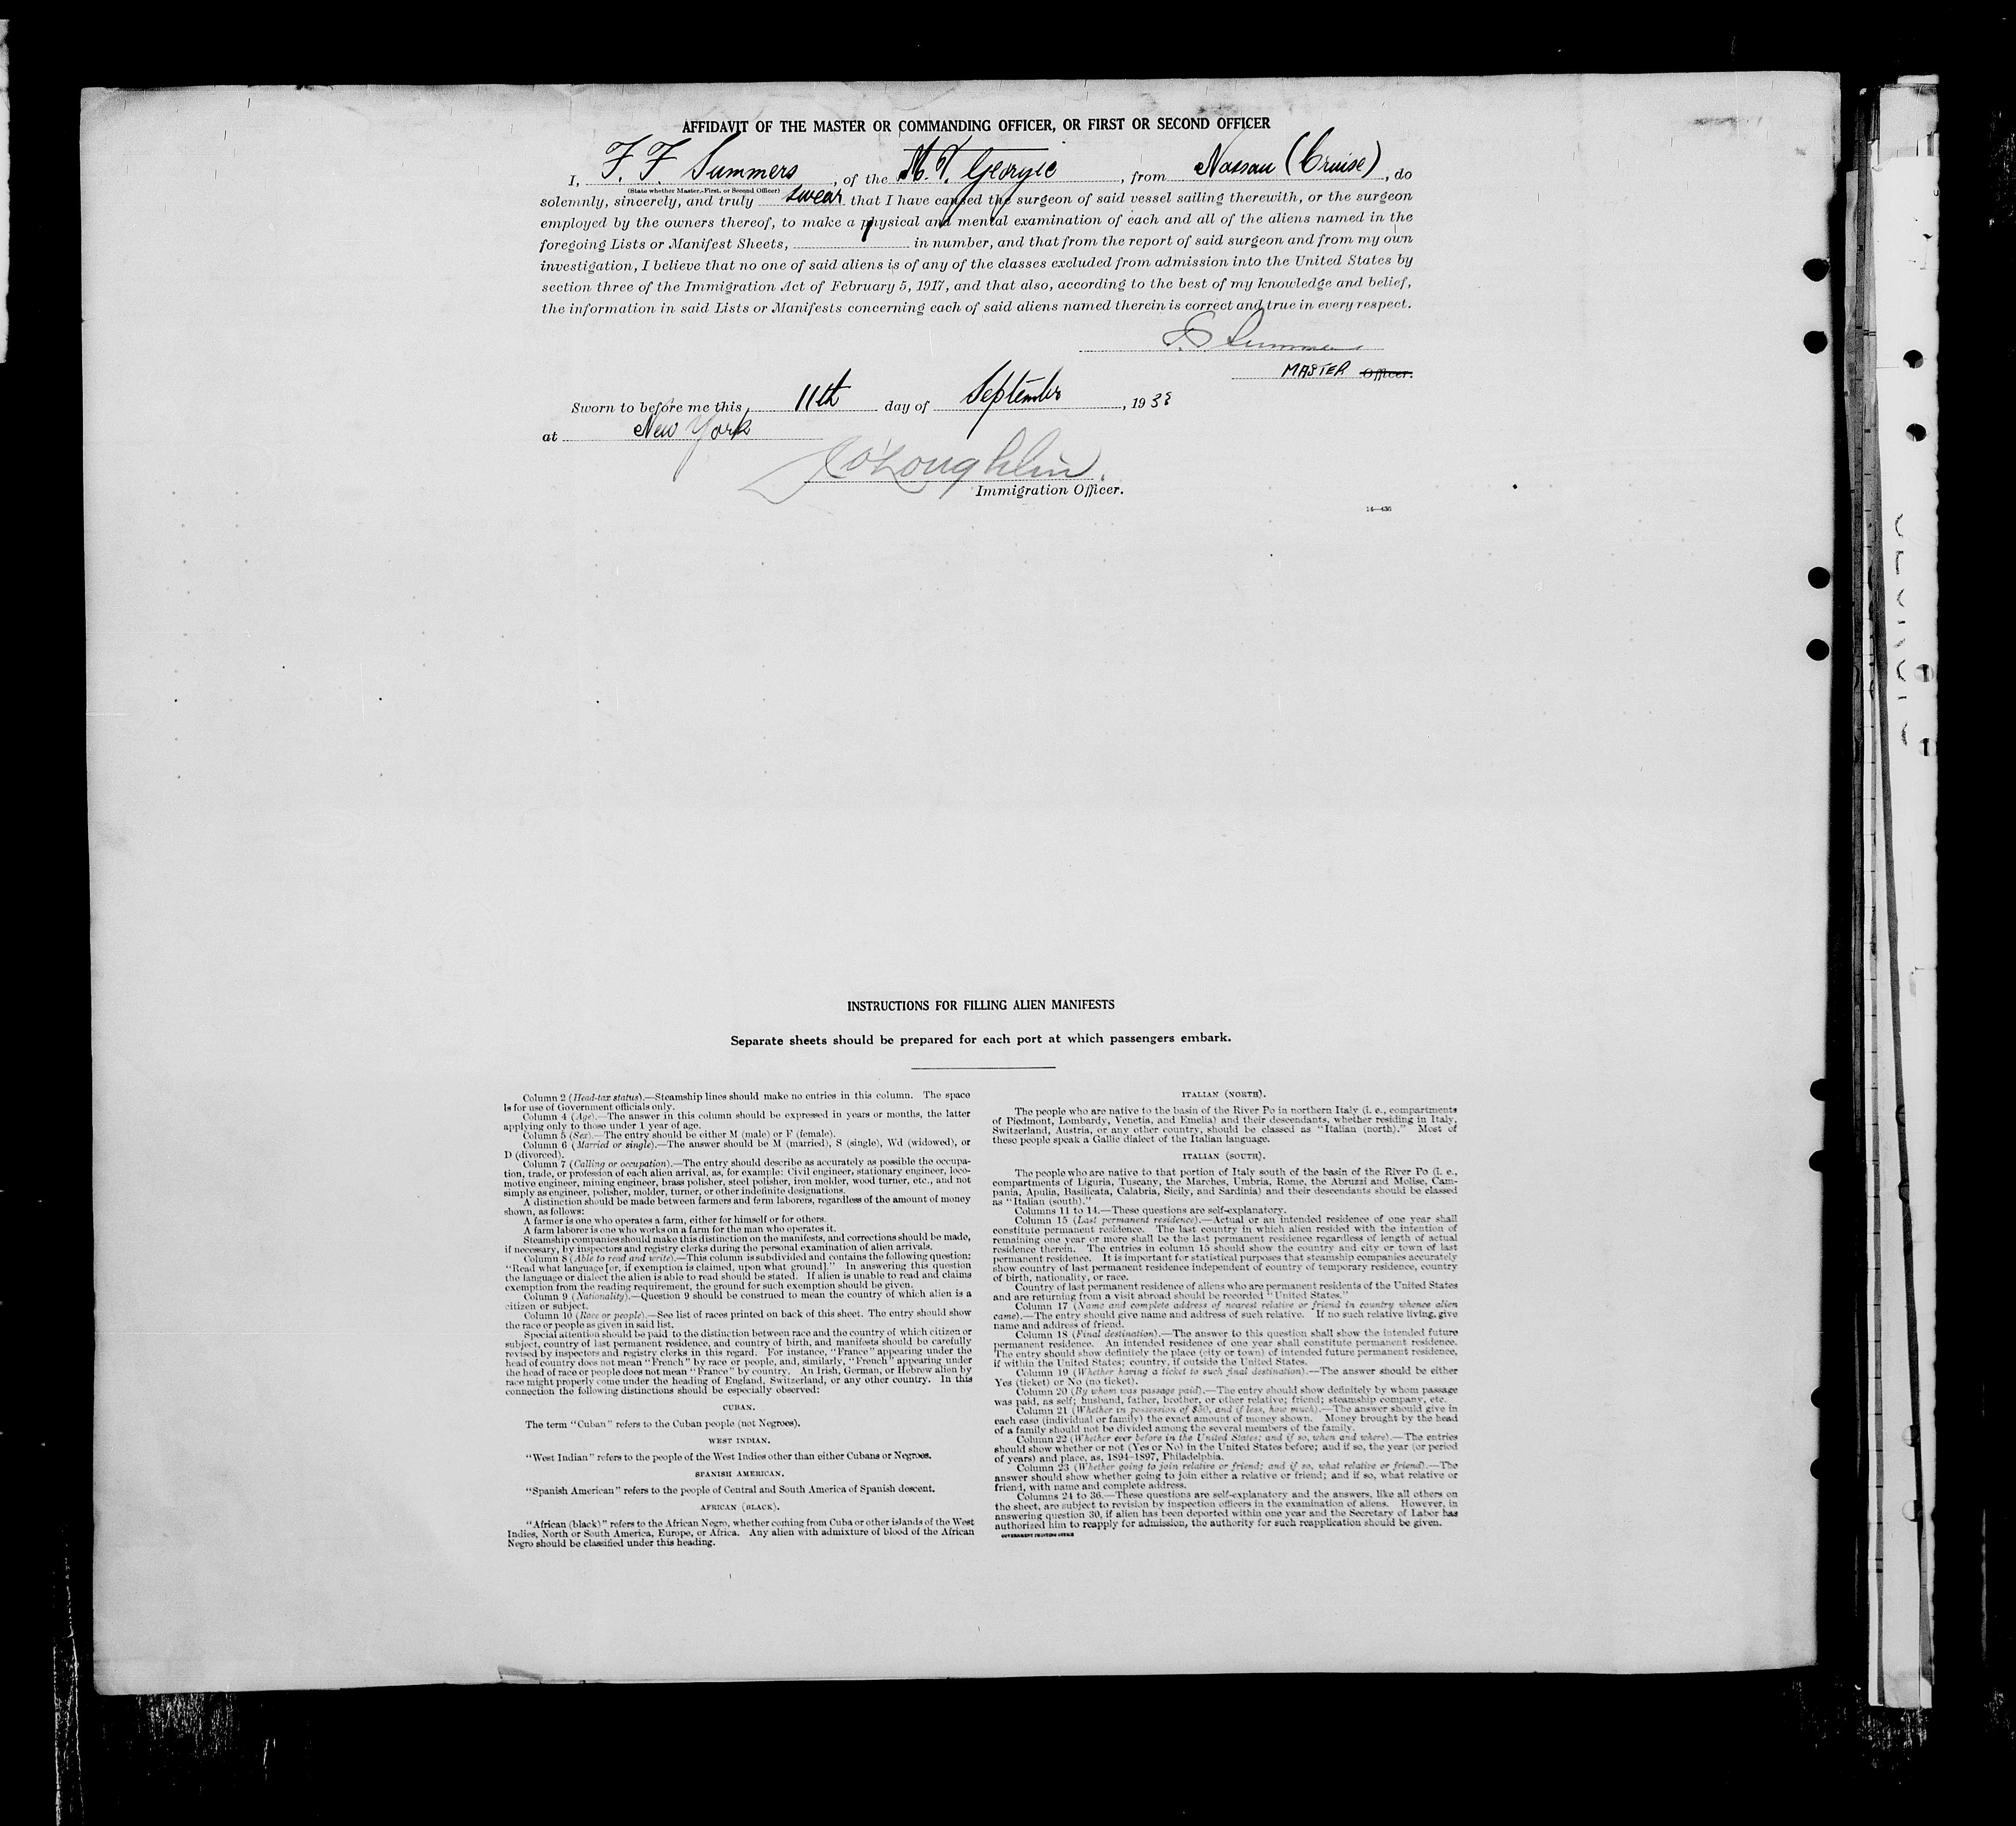 AFFIDAVIT OF THE MASTER OR COMMANDING OFFICER, OR FIRST OR SECOND OFFICER
I, F. F Summers, of the M.V. Georgic, from Nassau (Cruise), do
(State whether Master, First, or Second Officer)
solemnly, sincerely, and truly swear that I have caused the surgeon of said vessel sailing therewith, or the surgeon
employed by the owners thereof, to make a physical and mental examination of each and all of the aliens named in the
foregoing Lists or Manifest Sheets, in number, and that from the report of said surgeon and from my own
investigation, I believe that no one of said aliens is of any of the classes excluded from admission into the United States by
section three of the Immigration Act of February 5, 1917, and that also, according to the best of my knowledge and belief,
the information in said Lists or Manifests concerning each of said aliens named therein is correct and true in every respect.
F F Summers
MASTER Officer.
Sworn to before me this 11th day of September, 193
at New York
J O'Loughlin.
Immigration Officer.
14—436
INSTRUCTIONS FOR FILLING ALIEN MANIFESTS
Separate sheets should be prepared for each port at which passengers embark.
Column 2 (Head-tax status).—Steamship lines should make no entries in this column. The space
is for use of Government officials only.
Column 4 (Age).—The answer in this column should be expressed in years or months, the latter
applying only to those under 1 year of age.
Column 5 (Sex).—The entry should be either M (male) or F (female).
Column 6 (Married or single).—The answer should be M (married), S (single), Wd (widowed), or
D (divorced).
Column 7 (Calling or occupation).—The entry should describe as accurately as possible the occupa-
tion, trade, or profession of each alien arrival, as, for example: Civil engineer, stationary engineer, loco-
motive engineer, mining engineer, brass polisher, steel polisher, iron molder, wood turner, etc., and not
simply as engineer, polisher, molder, turner, or other indefinite designations.
A distinction should be made between farmers and farm laborers, regardless of the amount of money
shown, as follows:
A farmer is one who operates a farm, either for himself or for others.
A farm laborer is one who works on a farm for the man who operates it.
Steamship companies should make this distinction on the manifests, and corrections should be made,
if necessary, by inspectors and registry clerks during the personal examination of alien arrivals.
Column 8 (Able to read and write).—This column is subdivided and contains the following question:
"Read what language [or, if exemption is claimed, upon what ground]." In answering this question
the language or dialect the alien is able to read should be stated. If alien is unable to read and claims
exemption from the reading requirement, the ground for such exemption should be given.
Column 9 (Nationality).—Question 9 should be construed to mean the country of which alien is a
citizen or subject.
Column 10 (Race or people).—See list of races printed on back of this sheet. The entry should show
the race or people as given in said list.
Special attention should be paid to the distinction between race and the country of which citizen or
subject, country of last permanent residence, and country of birth, and manifests should be carefully
revised by inspectors and registry clerks in this regard. For instance, "France" appearing under the
head of country does not mean "French" by race or people, and, similarly, "French" appearing under
the head of race or people does not mean "France" by country. An Irish, German, or Hebrew alien by
race might properly come under the heading of England, Switzerland, or any other country. In this
connection the following distinctions should be especially observed:
CUBAN.
The term "Cuban" refers to the Cuban people (not Negroes).
WEST INDIAN.
"West Indian" refers to the people of the West Indies other than either Cubans or Negroes.
SPANISH AMERICAN.
"Spanish American" refers to the people of Central and South America of Spanish descent.
AFRICAN (BLACK).
"African (black)" refers to the African Negro, whether coming from Cuba or other islands of the West
Indies, North or South America, Europe, or Africa. Any alien with admixture of blood of the African
Negro should be classified under this heading.
ITALIAN (NORTH).
The people who are native to the basin of the River Po in northern Italy (i. e., compartments
of Piedmont, Lombardy, Venetia, and Emelia) and their descendants, whether residing in Italy,
Switzerland, Austria, or any other country, should be classed as "Italian (north)." Most of
these people speak a Gallic dialect of the Italian language.
ITALIAN (SOUTH).
The people who are native to that portion of Italy south of the basin of the River Po (i. e.,
compartments of Liguria, Tuscany, the Marches, Umbria, Rome, the Abruzzi and Molise, Cam-
pania, Apulia, Basilicata, Calabria, Sicily, and Sardinia) and their descendants should be classed
as "Italian (south)."
Columns 11 to 14.—These questions are self-explanatory.
Column 15 (Last permanent residence).—Actual or an intended residence of one year shall
constitute permanent residence. The last country in which alien resided with the intention of
remaining one year or more shall be the last permanent residence regardless of length of actual
residence therein. The entries in column 15 should show the country and city or town of last
permanent residence. It is important for statistical purposes that steamship companies accurately
show country of last permanent residence independent of country of temporary residence, country
of birth, nationality, or race.
Country of last permanent residence of aliens who are permanent residents of the United States
and are returning from a visit abroad should be recorded "United States."
Column 17 (Name and complete address of nearest relative or friend in country whence alien
came).—The entry should give name and address of such relative. If no such relative living, give
name and address of friend.
Column 18 (Final destination).—The answer to this question shall show the intended future
permanent residence. An intended residence of one year shall constitute permanent residence.
The entry should show definitely the place (city or town) of intended future permanent residence,
if within the United States; country, if outside the United States.
Column 19 (Whether having a ticket to such final destination).—The answer should be either
Yes (ticket) or No (no ticket).
Column 20 (By whom was passage paid).—The entry should show definitely by whom passage
was paid, as self; husband, father, brother, or other relative; friend; steamship company, etc.
Column 21 (Whether in possession of $50, and if less, how much).—The answer should give in
each case (individual or family) the exact amount of money shown. Money brought by the head
of a family should not be divided among the several members of the family.
Column 22 (Whether ever before in the United States; and if so, when and where).—The entries
should show whether or not (Yes or No) in the United States before; and if so, the year (or period
of years) and place, as, 1894-1897, Philadelphia.
Column 23 (Whether going to join relative or friend; and if so, what relative or friend).—The
answer should show whether going to join either a relative or friend; and if so, what relative or
friend, with name and complete address.
Columns 24 to 36.—These questions are self-explanatory and the answers, like all others on
the sheet, are subject to revision by inspection officers in the examination of aliens. However, in
answering question 30, if alien has been deported within one year and the Secretary of Labor has
authorized him to reapply for admission, the authority for such reapplication should be given.
GOVERNMENT PRINTING OFFICE